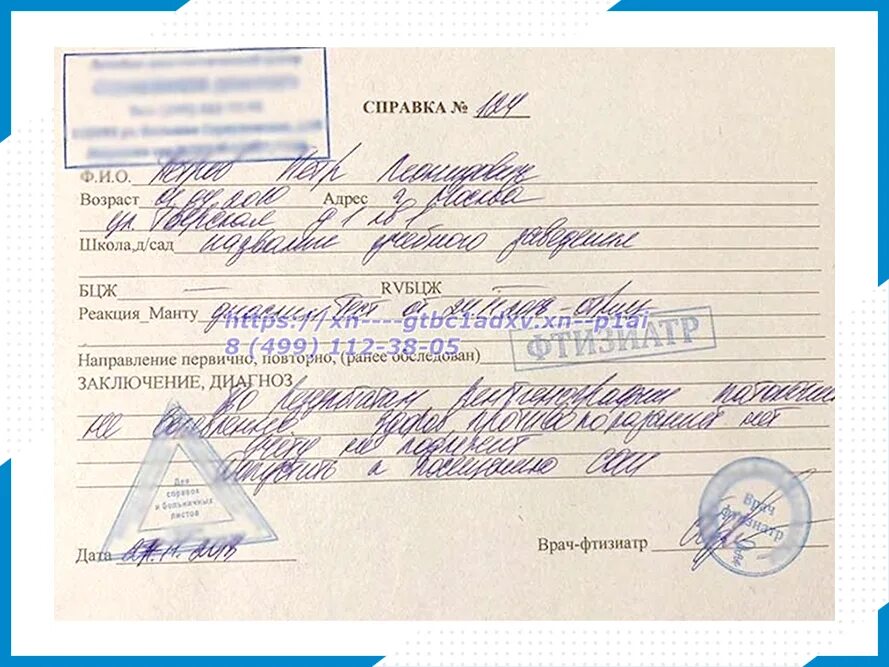 СПРАВКА № 124
Ф.И.О. Петров Петр Леонидович
Возраст 01.04.2010 Адрес г. Москва
ул. Тверская д 1 кв 1
Школа,д/сад название учебного заведения
БЦЖ — RVБЦЖ —
Реакция_Манту диаскин тест от 24.11.2018 - отриц
https://xn----gtbc1adxv.xn--p1ai
8 (499) 112-38-05
ФТИЗИАТР
Направление первично, повторно, (ранее обследован)
ЗАКЛЮЧЕНИЕ, ДИАГНОЗ
По результатам рентгенографии патологии
не выявлено здоров, противопоказаний нет
учету не подлежит
Допустить к посещению СОШ
Для
справок
и больничных
листов
Врач
фтизиатр
Дата 27.11.2018
Врач-фтизиатр